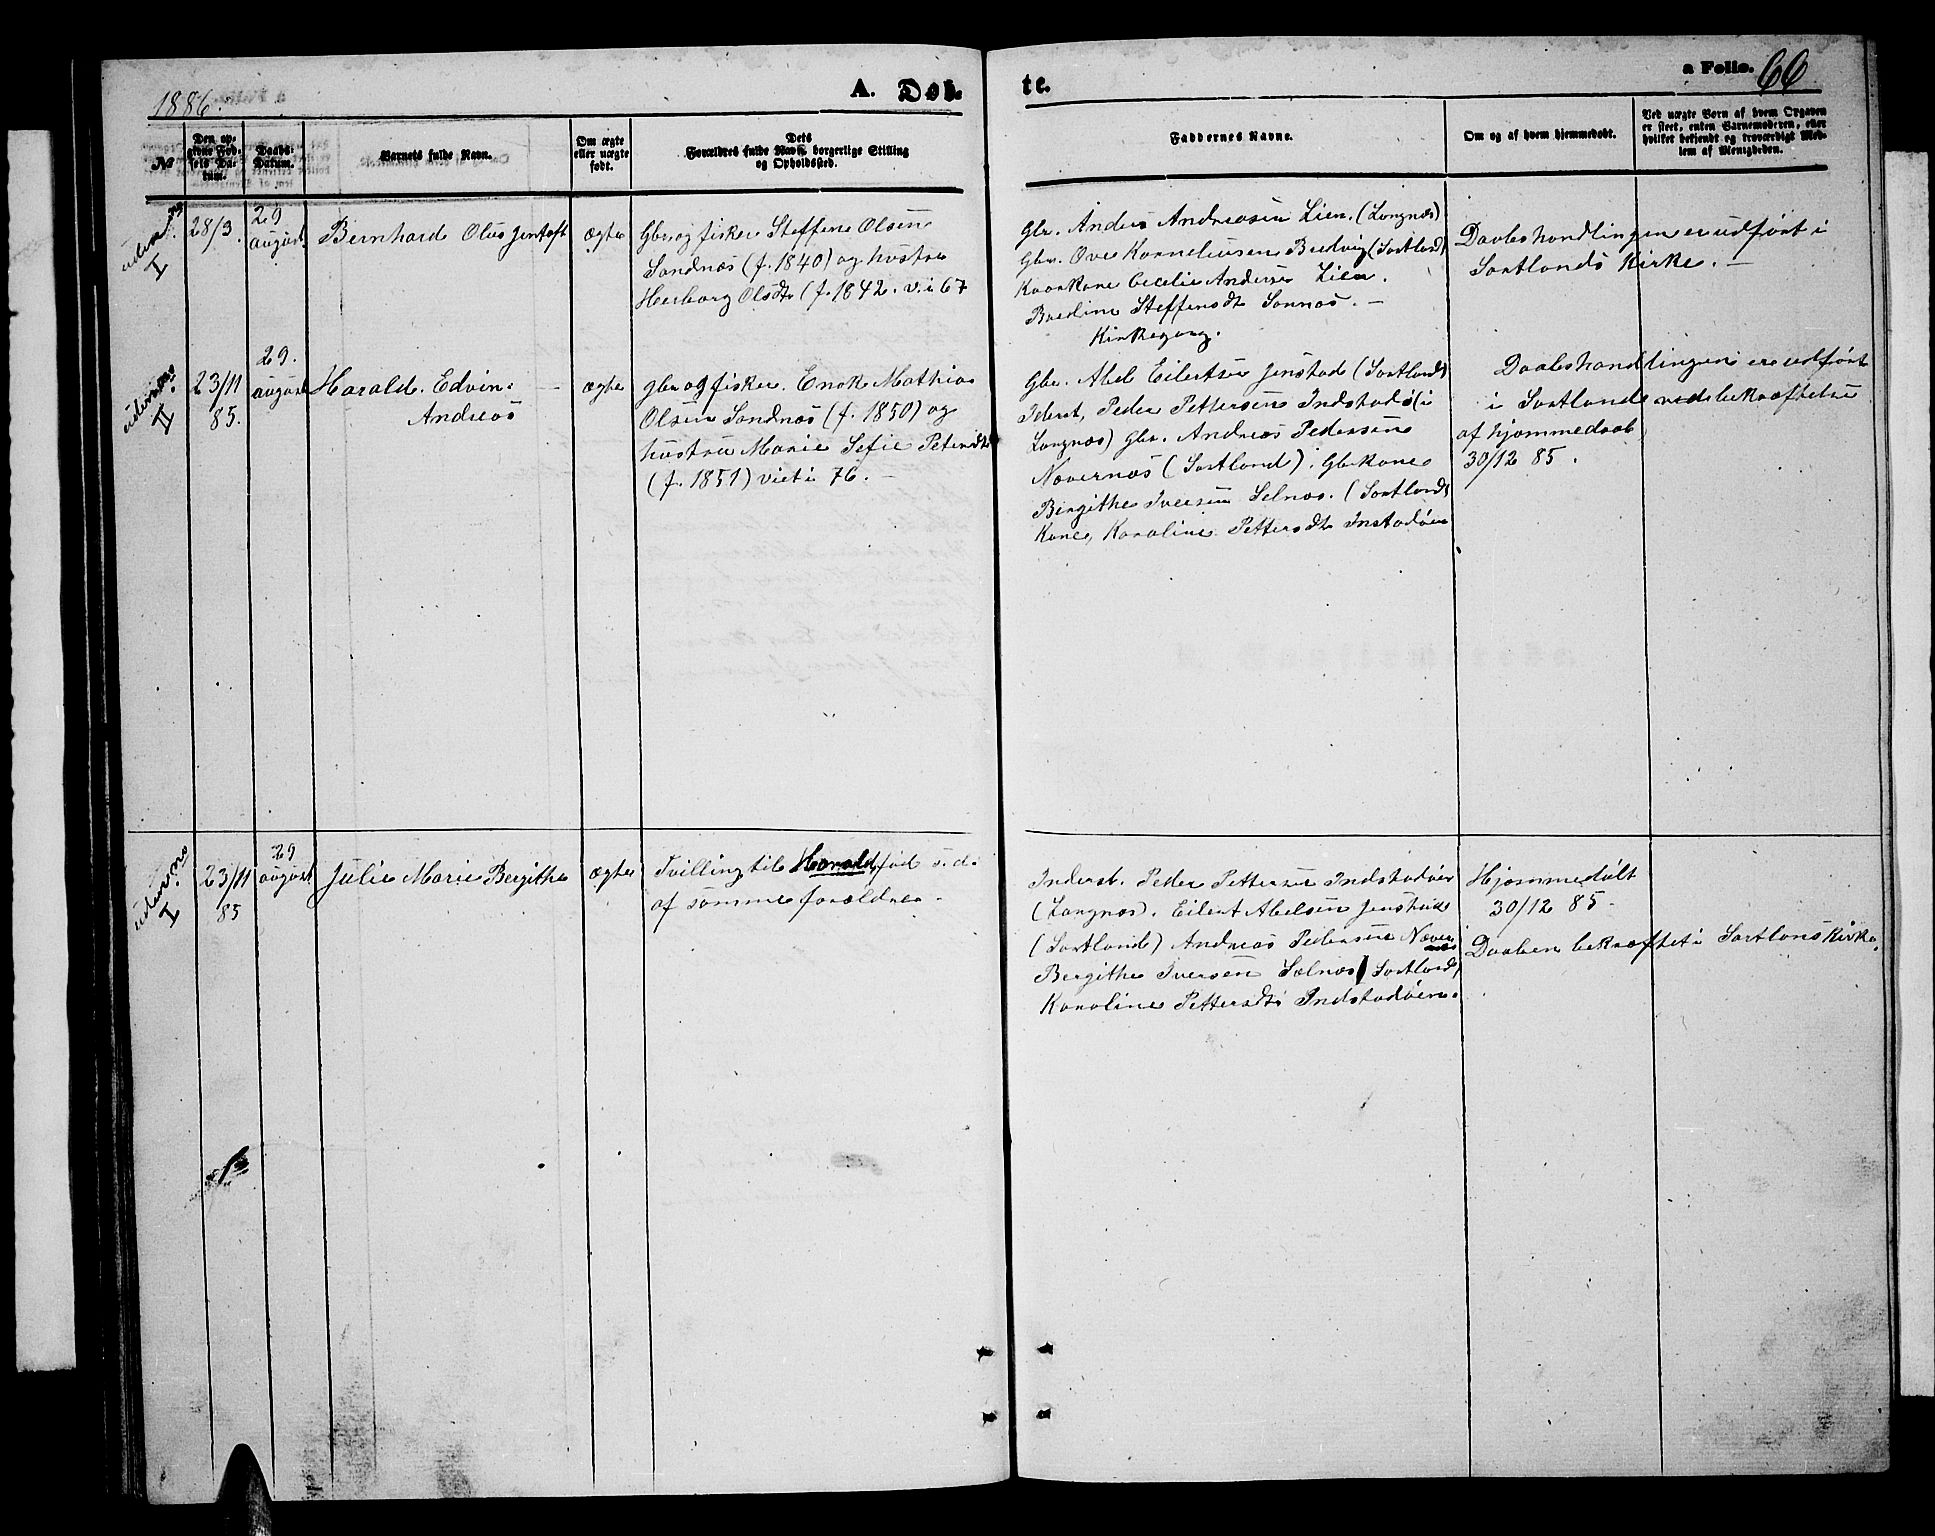 1886.
A. Døb
te.
a Folio. 66
№
Den op-
givne Fød-
sels Da-
tum.
Daabs-
Datum.
Barnets fulde Navn.
Om ægte
eller uægte
født.
Dets
Forældres fulde Navn, borgerlige Stilling
og Opholdssted.
Faddernes Navne.
Om og af hvem hjemmedøbt.
Ved uægte Børn af hvem Opgaven
er skeet, enten Barnemoderen, eller
hvilket bekjendt og troværdigt Med-
lem af Menigheden.
I
28/3.
29
august
Bernhard Olus Jentoft
ægte
Gbr og fisker Steffen Olsen
Sandnæs (f. 1840) og hustru
Herborg Olsdt (f. 1842. v. i 67
Gbr. Anders Andreasen Lien. (Langnæs)
Gbr. Ove Korneliusen Budvig (Sortland)
Kaarkone Cecelie Anderse Lien.
Bredine Steffensdt Sannæs. —
Kirkegang.
Daabshandlingen er udført i
Sortlands Kirke. —
II
23/11
85.
29.
august
Harald. Edvin
Andreas
ægte
gbr og fisker. Enok Mathias
Olsen Sandnæs (f. 1850) og
hustru Marie Sefie Petersdt
(f. 1851) viet i 76. —
Gbr. Abel Eilertsen Jenstad (Sortland)
Iderst, Peder Pettersen Indstad (i
Langnæs) Gbr. Andreas Pedersen
Nævernæs (Sortland). Gbrkone
Bergithe Iversen Selnæs. (Sortland)
Kone, Karoline Pettersdt Instadøen
Daabshandlingen er udført
i Sortland ved bekræftelse
af hjemmedaab
30/12 85.
I
23/11
85
29
august
Julie Marie Bergithe
ægte
Tvilling til Harald, fød s. d.
af samme forældre. —
Inderst. Peder Pettersen Indstadøen
(Langnæs). Eilert Abelsen Jenstad
(Sortland) Andreas Pedersen Næver
næs
Bergithe Iversen Selnæs (Sortland)
Karoline Pettersdt Indstadøen.
Hjemmedøbt
30/12 85.
Daaben bekræftet i Sortlans Kirke.